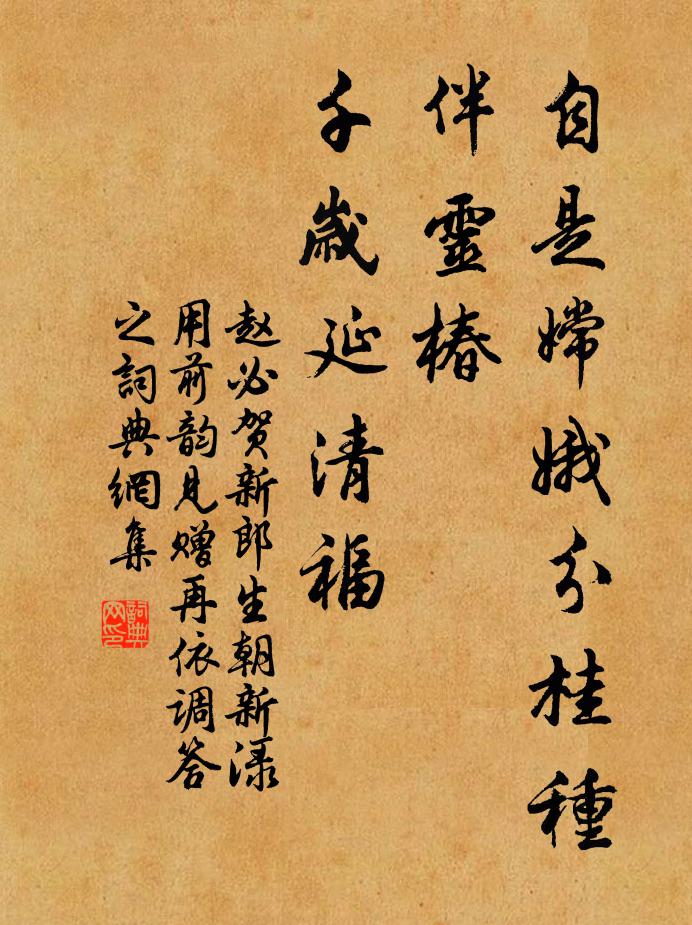 自是嫦娥分桂種
伴靈椿
千歲延清福
赵必贺新郎生朝新渌
用前韵见赠再依调答
之詞典網集
詞典网印